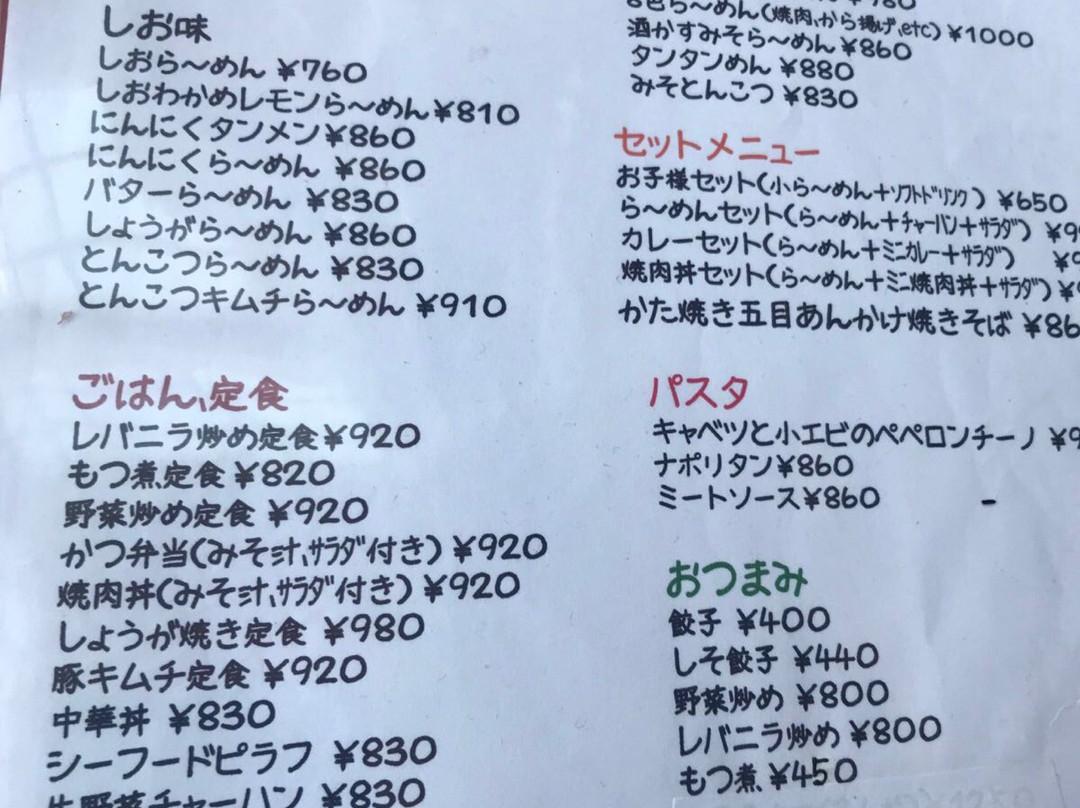 しお味
しおら〜めん ¥760
しおわかめレモンら〜めん ¥810
にんにくタンメン ¥860
にんにくら〜めん ¥860
バターら〜めん ¥830
しょうがら〜めん ¥860
とんこつら〜めん ¥830
とんこつキムチら〜めん ¥910
ごはん、定食
レバニラ炒め定食 ¥920
もつ煮定食 ¥820
野菜炒め定食 ¥920
かつ弁当(みそ汁、サラダ付き) ¥920
焼肉丼(みそ汁、サラダ付き) ¥920
しょうが焼き定食 ¥980
豚キムチ定食 ¥920
中華丼 ¥830
シーフードピラフ ¥830
野菜チャーハン ¥830
ら〜めん(焼肉、から揚げ、etc) ¥1000
酒かすみそら〜めん ¥860
タンタンめん ¥880
みそとんこつ ¥830
セットメニュー
お子様セット(小ら〜めん+ソフトドリンク) ¥650
ら〜めんセット(ら〜めん+チャーハン+サラダ) ¥9
カレーセット(ら〜めん+ミニカレー+サラダ) ¥9
焼肉丼セット(ら〜めん+ミニ焼肉丼+サラダ) ¥9
かた焼き五目あんかけ焼きそば ¥86
パスタ
キャベツと小エビのペペロンチーノ ¥9
ナポリタン ¥860
ミートソース ¥860
おつまみ
餃子 ¥400
しそ餃子 ¥440
野菜炒め ¥800
レバニラ炒め ¥800
もつ煮 ¥450